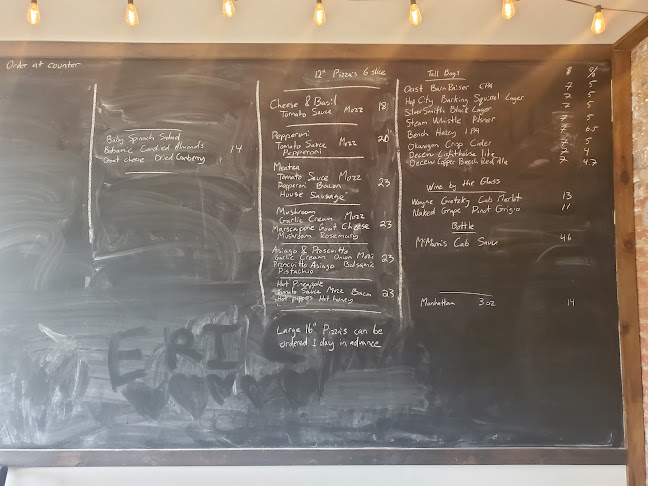 Order at counter
Baby Spinach Salad
Balsamic Candied Almonds 14
Goat cheese Dried Cranberry
12" Pizza's 6 slice
Cheese & Basil
Tomato Sauce Mozz 18
Pepperoni
Tomato Sauce Mozz 20
Pepperoni
Meatza
Tomato Sauce Mozz
Pepperoni Bacon 23
House Sausage
Mushroom
Garlic Cream Mozz
Marscapone Goat Cheese 23
Mushroom Rosemary
Asiago & Proscuitto
Garlic Cream Onion Mozz
Proncuitto Asiago Balsamic 23
Pistachio
Hot Pineapple
Tomato Sauce Mozz Bacon 23
Hot peppers Hot honey
Large 16" Pizza's can be
ordered 1 day in advance
Tall Boys $ %
Oast Barn Raiser CPA 7 5
Hop City Barking Squirrel Lager 7 5
SilverSmith Black Lager 7 5
Steam Whistle Pilsner 7 5
Bench Hazey IPA 7 6.5
Okanagan Crisp Cider 7 5
Decew Lighthouse Lite 7 4
Decew Copper Beech Red Ale 7 4.7
Wine by the Glass
Wayne Gretzky Cab Merlot 13
Naked Grape Pinot Grigio 11
Bottle
McManis Cab Sauv 46
Manhattan 3oz 14
ERI